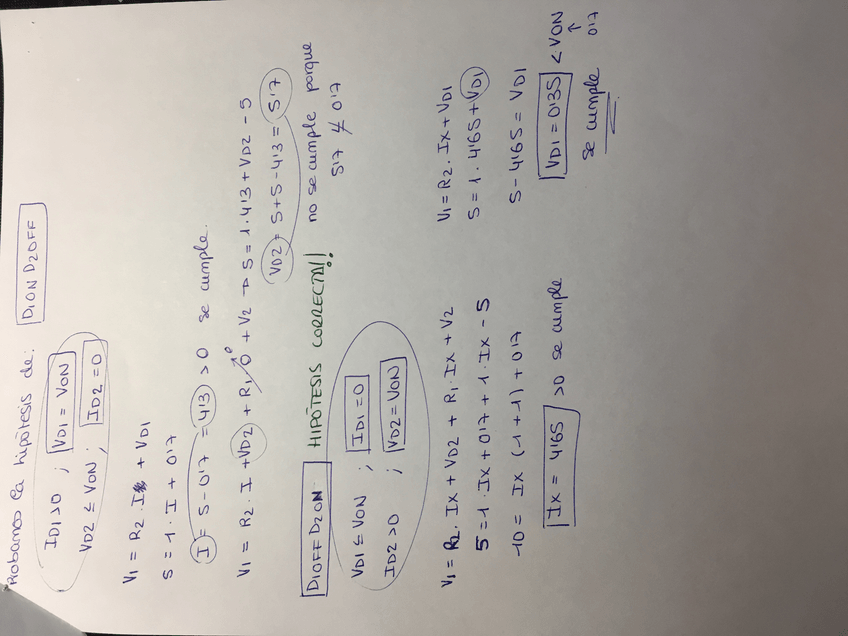 Probamos la hipótesis de: D1ON D2OFF
ID1>0 ; VD1 = VON
VD2 ≤ VON ; ID2 = 0
V1 = R2 · I + VD1
5 = 1 · I + 0'7
I = 5 - 0'7 = 4'3 > 0 se cumple.
V1 = R2 · I + VD2 + R1 · 0 + V2 → 5 = 1 · 4'3 + VD2 - 5
VD2 = 5+5-4'3 = 5'7
no se cumple porque
5'7 ≮ 0'7
D1OFF D2ON HIPÓTESIS CORRECTA!!
VD1 ≤ VON ; ID1 = 0
ID2 > 0 ; VD2 = VON
V1 = R2 · Ix + VD2 + R1 · Ix + V2
5 = 1 · Ix + 0'7 + 1 · Ix - 5
10 = Ix (1+1) + 0'7
Ix = 4'65 >0 se cumple
V1 = R2 · Ix + VD1
5 = 1 · 4'65 + VD1
5 - 4'65 = VD1
VD1 = 0'35 < VON
↑
0'7
se cumple